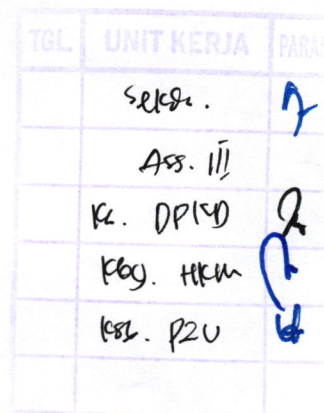 TGL. UNIT KERJA PARA
Sekda.
Ass. III
Ka. DPKD
Kbg. HKM
Ksb. P2U